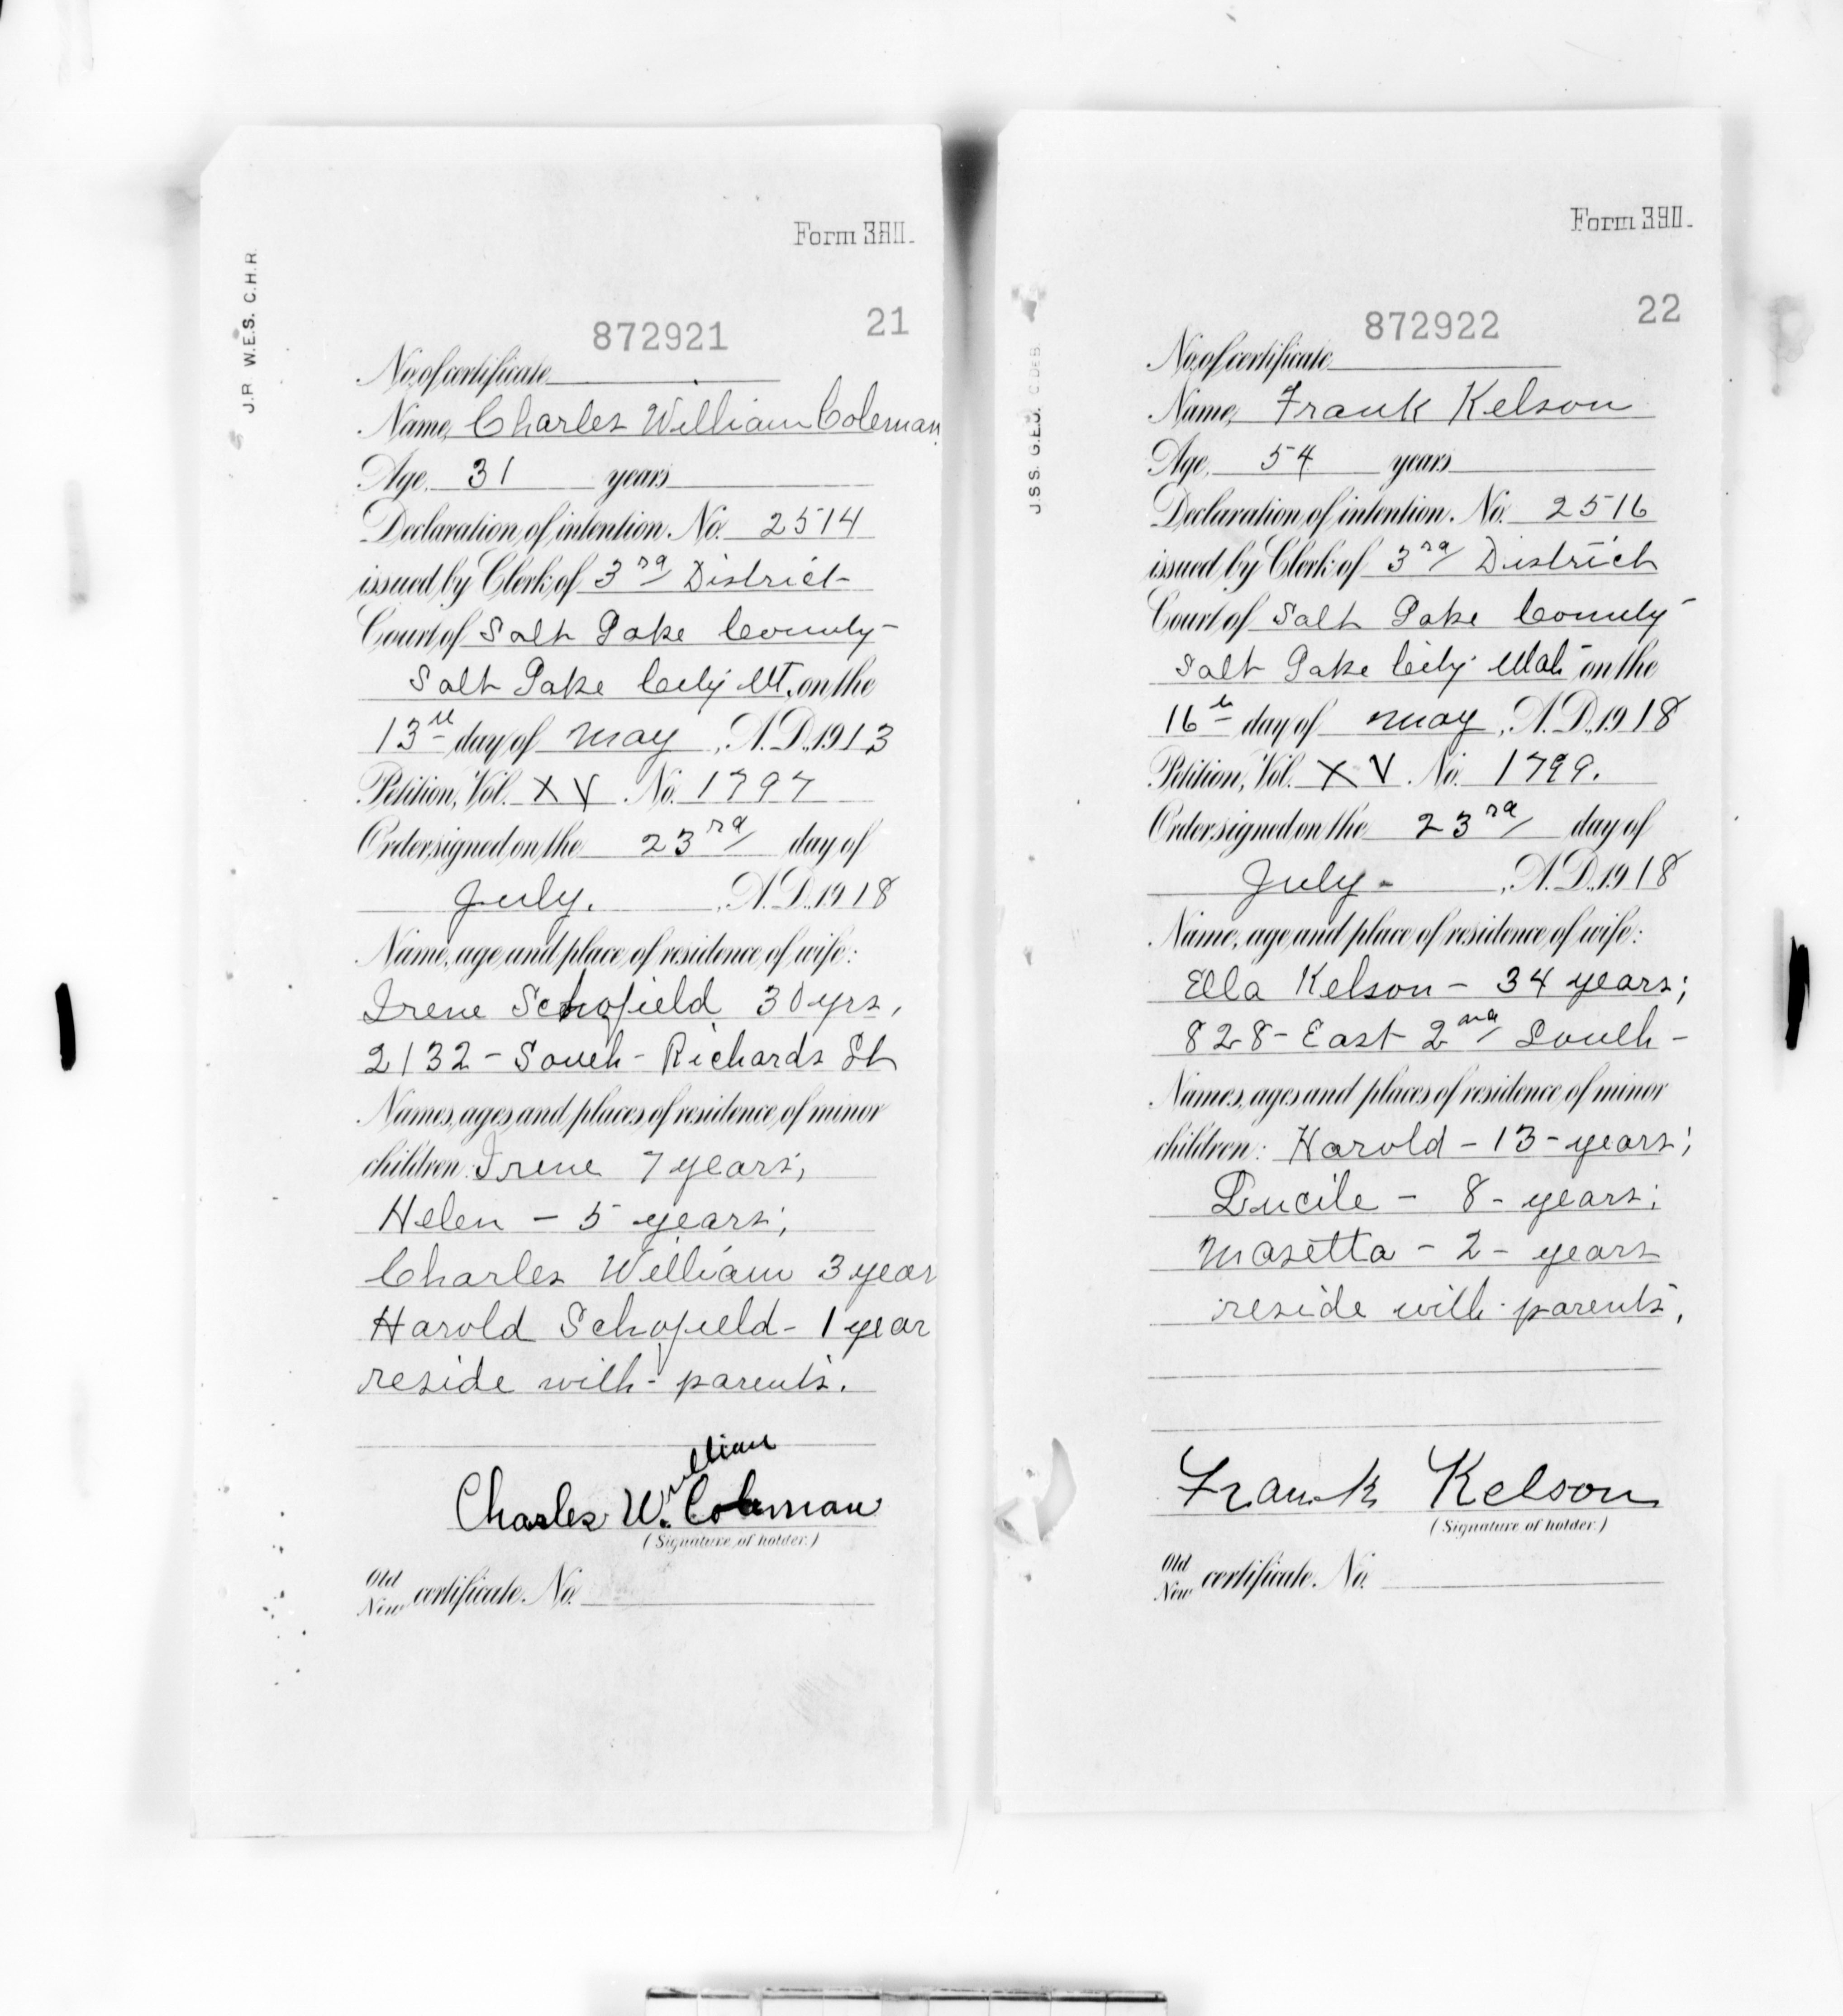 J.P. W.E.S. C.H.R.
Form 390.
872921 21
No. of certificate
Name, Charles William Coleman
Age, 31 years
Declaration of intention, No. 2514
issued by Clerk of 3rd District
Court of Salt Lake County
Salt Lake City UT. on the
13th day of May, A.D. 1913
Petition, Vol. XV No. 1797
Order signed on the 23rd day of
July. , A.D. 1918
Name, age and place of residence of wife:
Irene Schofield 30 yrs,
2132 - South - Richards St
Names, ages and places of residence of minor
children: Irene 7 years;
Helen - 5 years;
Charles William 3 year
Harold Schofield - 1 year
reside with parents.
William
Charles W. Coleman
(Signature of holder.)
Old
New certificate. No.
J.S.S. G.E.J. C.DeB.
Form 390.
872922 22
No. of certificate
Name, Frank Kelson
Age, 54 years
Declaration of intention, No. 2516
issued by Clerk of 3rd District
Court of Salt Lake County
Salt Lake City Utah on the
16th day of May, A.D. 1918
Petition, Vol. XV. No. 1799.
Order signed on the 23rd day of
July - , A.D. 1918
Name, age and place of residence of wife:
Ella Kelson - 34 years;
828 - East 2nd South -
Names, ages and places of residence of minor
children: Harold - 13 - years;
Lucile - 8 - years;
Masetta - 2 - years
reside with parents,
Frank Kelson
(Signature of holder.)
Old
New certificate. No.